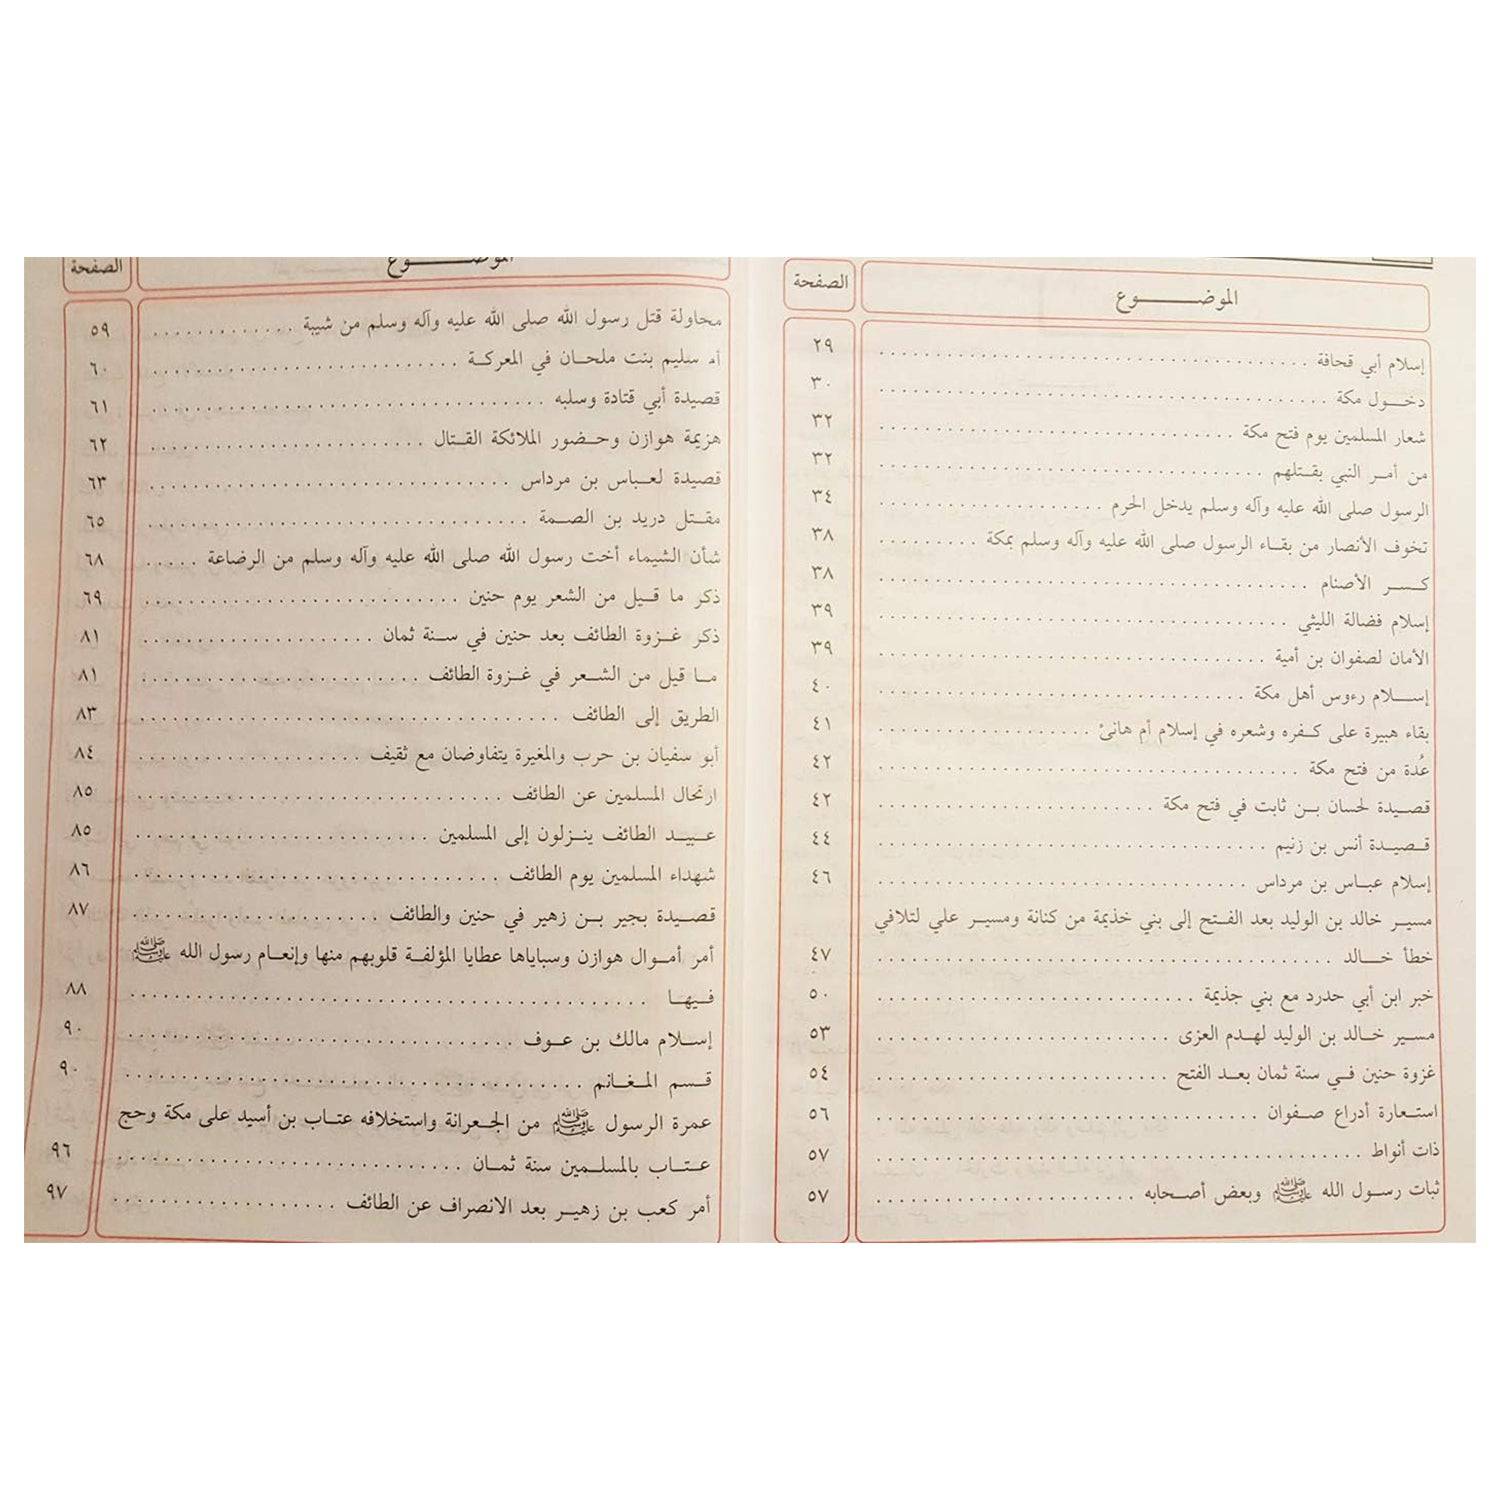 الموضـــــــوع الصفحة
إسلام أبي قحافة ٢٩
دخـــول مكة ٣٠
شعار المسلمين يوم فتح مكة ٣٢
من أمـر النبي بقـتلهم ٣٢
الرسول صلى الله عليه وآله وسلم يدخل الحرم ٣٤
تخوف الأنصار من بقـاء الرسول صلى الله عليه وآله وسلم بمكة ٣٨
كـــسر الأصنام ٣٨
إسلام فضالة الليثي ٣٩
الأمان لصفوان بن أمية ٣٩
إســـلام رءوس أهل مكة ٤٠
بقاء هبيرة على كـفره وشعره في إسلام أم هانئ ٤١
عُدة من فتح مكة ٤٢
قصيدة لحسان بـن ثابت في فتح مكة ٤٢
قـصيـدة أنس بن زنيم ٤٤
إسلام عبـاس بن مرداس ٤٦
مسيـر خالد بن الوليد بعد الفـتح إلى بني خذيمة من كنانة ومسيـر علي لتلافي
خطأ خـــالد ٤٧
خبر ابن أبي حدرد مع بني جذيمة ٥٠
مسـير خـالد بن الوليد لهـدم العزى ٥٣
غزوة حنين فـي سنة ثمان بعـد الفتح ٥٤
استـعارة أدراع صـفوان ٥٦
ذات أنواط ٥٧
ثبات رسـول الله ﷺ وبعض أصـحابه ٥٧
الموضـــــــوع الصفحة
محاولة قتل رسول الله صلى الله عليه وآله وسلم من شيبة ٥٩
أم سليم بنت ملحـان في المعركـة ٦٠
قصيدة أبي قتادة وسلبه ٦١
هزيمة هوازن وحـضور الملائكة القـتال ٦٢
قصيدة لعـباس بن مرداس ٦٣
مقـتل دريد بن الصـمة ٦٥
شأن الشيماء أخت رسول الله صلى الله عليه وآله وسلم من الرضاعة ٦٨
ذكر ما قـيل من الشعر يوم حنين ٦٩
ذكر غـزوة الطائف بعد حنين في سـنة ثمان ٨١
مـا قيل من الشـعر في غـزوة الطائف ٨١
الطريق إلى الطائف ٨٣
أبو سفيان بن حرب والمغيرة يتفاوضان مع ثقيف ٨٤
ارتحال المسلمين عن الطائف ٨٥
عـبيـد الطائف ينـزلون إلى المسلمين ٨٥
شهداء المسلمين يوم الطائف ٨٦
قصـيدة بجير بـن زهير في حنين والطائف ٨٧
أمر أمـوال هوازن وسباياها عطايا المؤلفـة قلوبهم منها وإنعام رسول الله ﷺ
فـيهـا ٨٨
إسـلام مالك بن عـوف ٩٠
قـسم المـغـانم ٩٠
عمرة الرسول ﷺ من الجـعرانة واستخلافه عتـاب بن أسيد على مكة وحج
عـتـاب بالمسلـمين سنة ثمـان ٩٦
أمر كعب بن زهيـر بعد الانصراف عن الطائف ٩٧